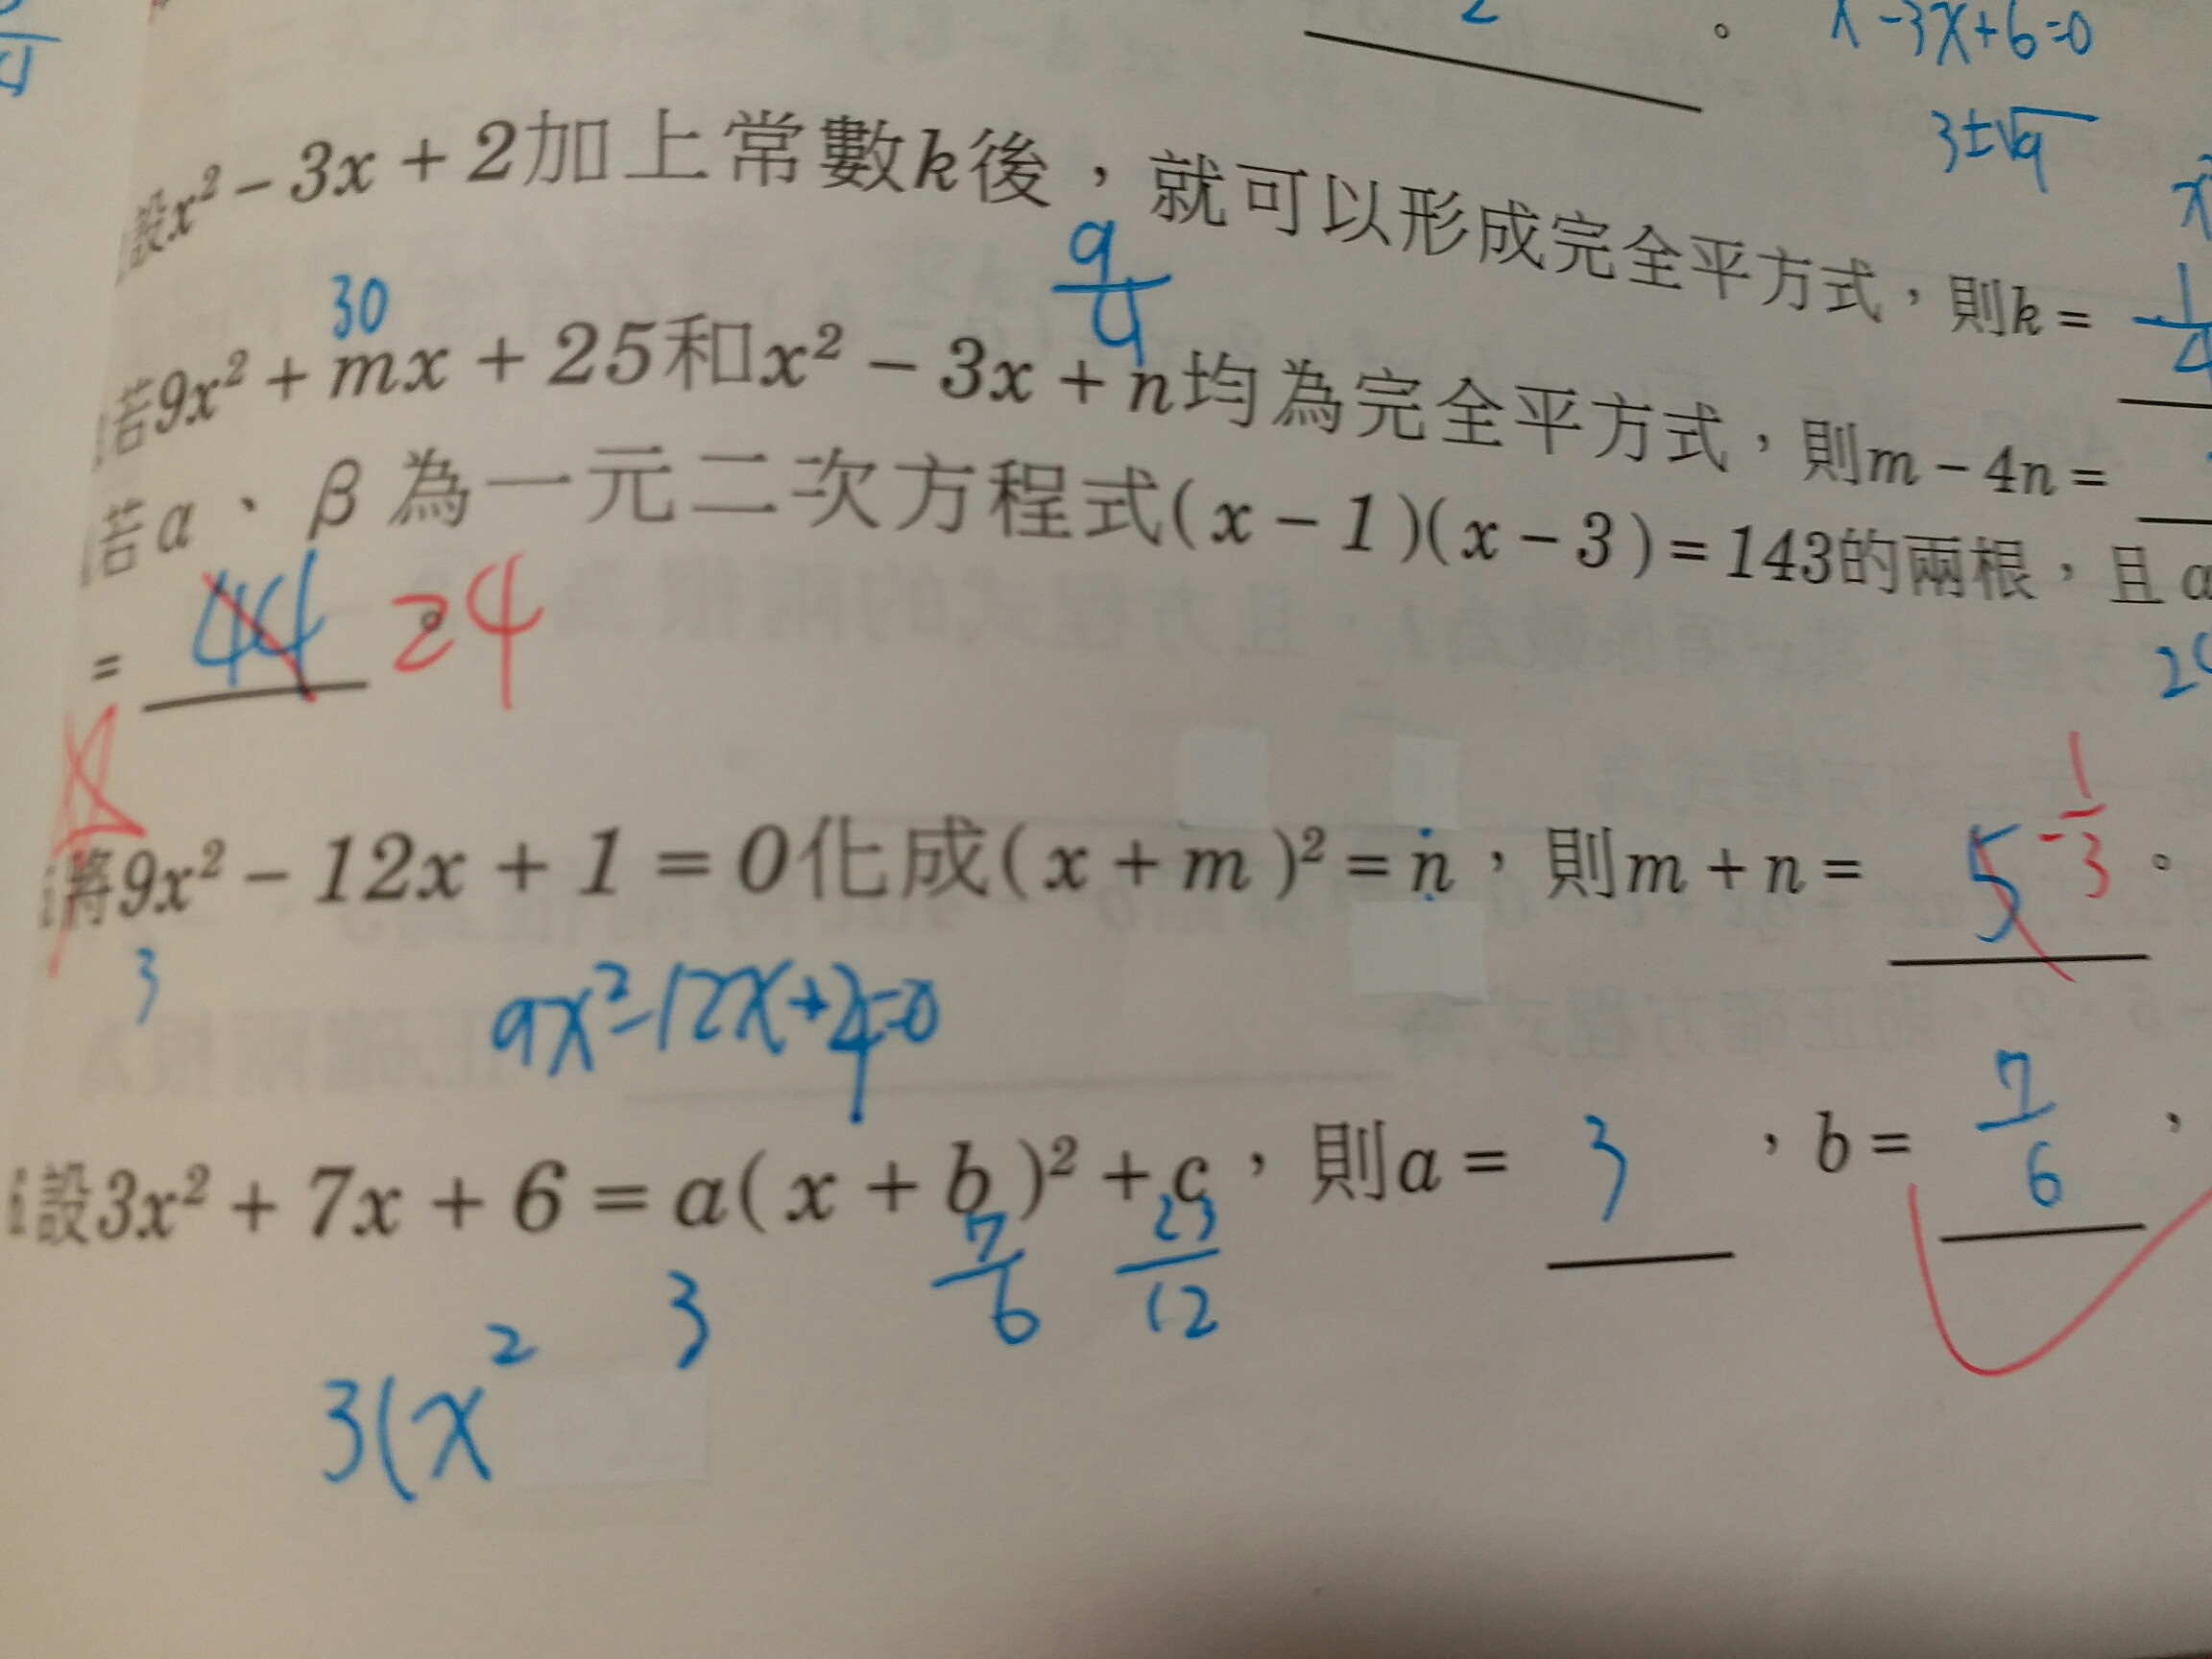 x -3x+6=0
3±√9
設x² - 3x + 2加上常數k後，就可以形成完全平方式，則k = 1/4
30
9/4
若9x² + mx + 25和x² - 3x + n均為完全平方式，則m - 4n =
若α、β為一元二次方程式(x - 1)(x - 3) = 143的兩根，且α
= 44 24
將9x² - 12x + 1 = 0化成(x + m)² = n，則m + n = 5 -1/3。
3
9x²-12x+4=0
設3x² + 7x + 6 = a(x + b)² + c，則a = 3，b = 7/6，
3 7/6 23/12
3(x²